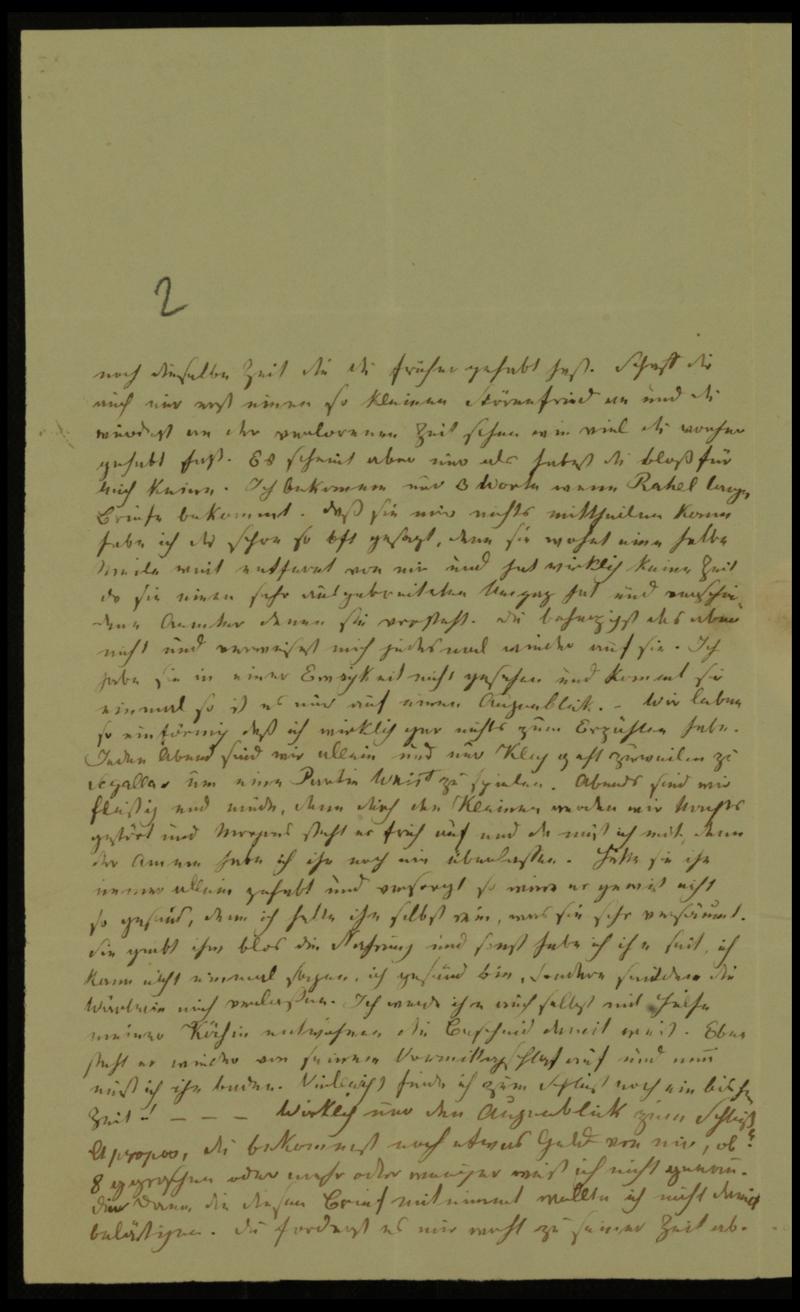 2
noch dieselbe Zeit die du früher gehabt hast. Schaff du
auch nur erst einen so kleinen Störenfried an und du
würdest an der verlorenen Zeit sehen wie viel du vorher
gehabt hast. Es scheint aber nur als habest du bloß für
mich keine. Ich bekomme nur 3 Worte wenn Rahel lange
Briefe bekommt. Daß sie mir nichts mittheilen kann
habe ich dir schon so oft gesagt, denn sie wohnt eine halbe
Meile weit entfernt von mir und hat wirklich keine Zeit
da sie einen sehr ausgebreiteten Umgang hat und verschie-
dene Aemter denen sie vorsteht. Du beherzigst das aber
nicht und verweisest mich jedesmal wieder auf sie. Ich
habe sie in einer Ewigkeit nicht gesehen und kommt sie
einmal so ist es nur auf einen Augenblick. - Wir leben
so einförmig daß ich wirklich gar nichts zum Erzählen habe.
Jeden Abend sind wir allein und nur geht zuweilen zu
um eine Partie Whist zu spielen. Abends sind wir
fleißig und müde, denn durch den Kleinen werden wir Nachts
gestört und Morgens steht er früh auf und da muß ich mit, denn
der Amme habe ich ihn noch nie überlassen. Hätte sie ihn
immer allein gehabt und versorgt so wäre er gewiß nicht
so gesund, denn ich halte ihn selbst rein, was sie sehr versäumt.
Sie giebt ihm blos die Nahrung und sonst habe ich ihn seit, ich
kann nicht einmal sagen, ich gesund bin, sondern seitdem die
Wärterin mich verlassen. Ich werde ihn auch selbst mit Hülfe
meiner Köchin entwöhnen die Bescheid damit weiß. Eben
steht er wieder von seinem Vormittagschlaf auf und nun
muß ich ihn baden. Vielleicht finde ich zum Schluß noch ein bischen
Zeit! - - - Wirklich nur den Augenblick zum Schluß
Apropos, du bekommst noch etwas Geld von mir, ob
8 ggroschen oder mehr oder weniger weiß ich nicht genau.
Die Dame die diesen Brief mitnimmt wollte ich nicht damit
belästigen. Du forderst es mir wohl zu seiner Zeit ab.